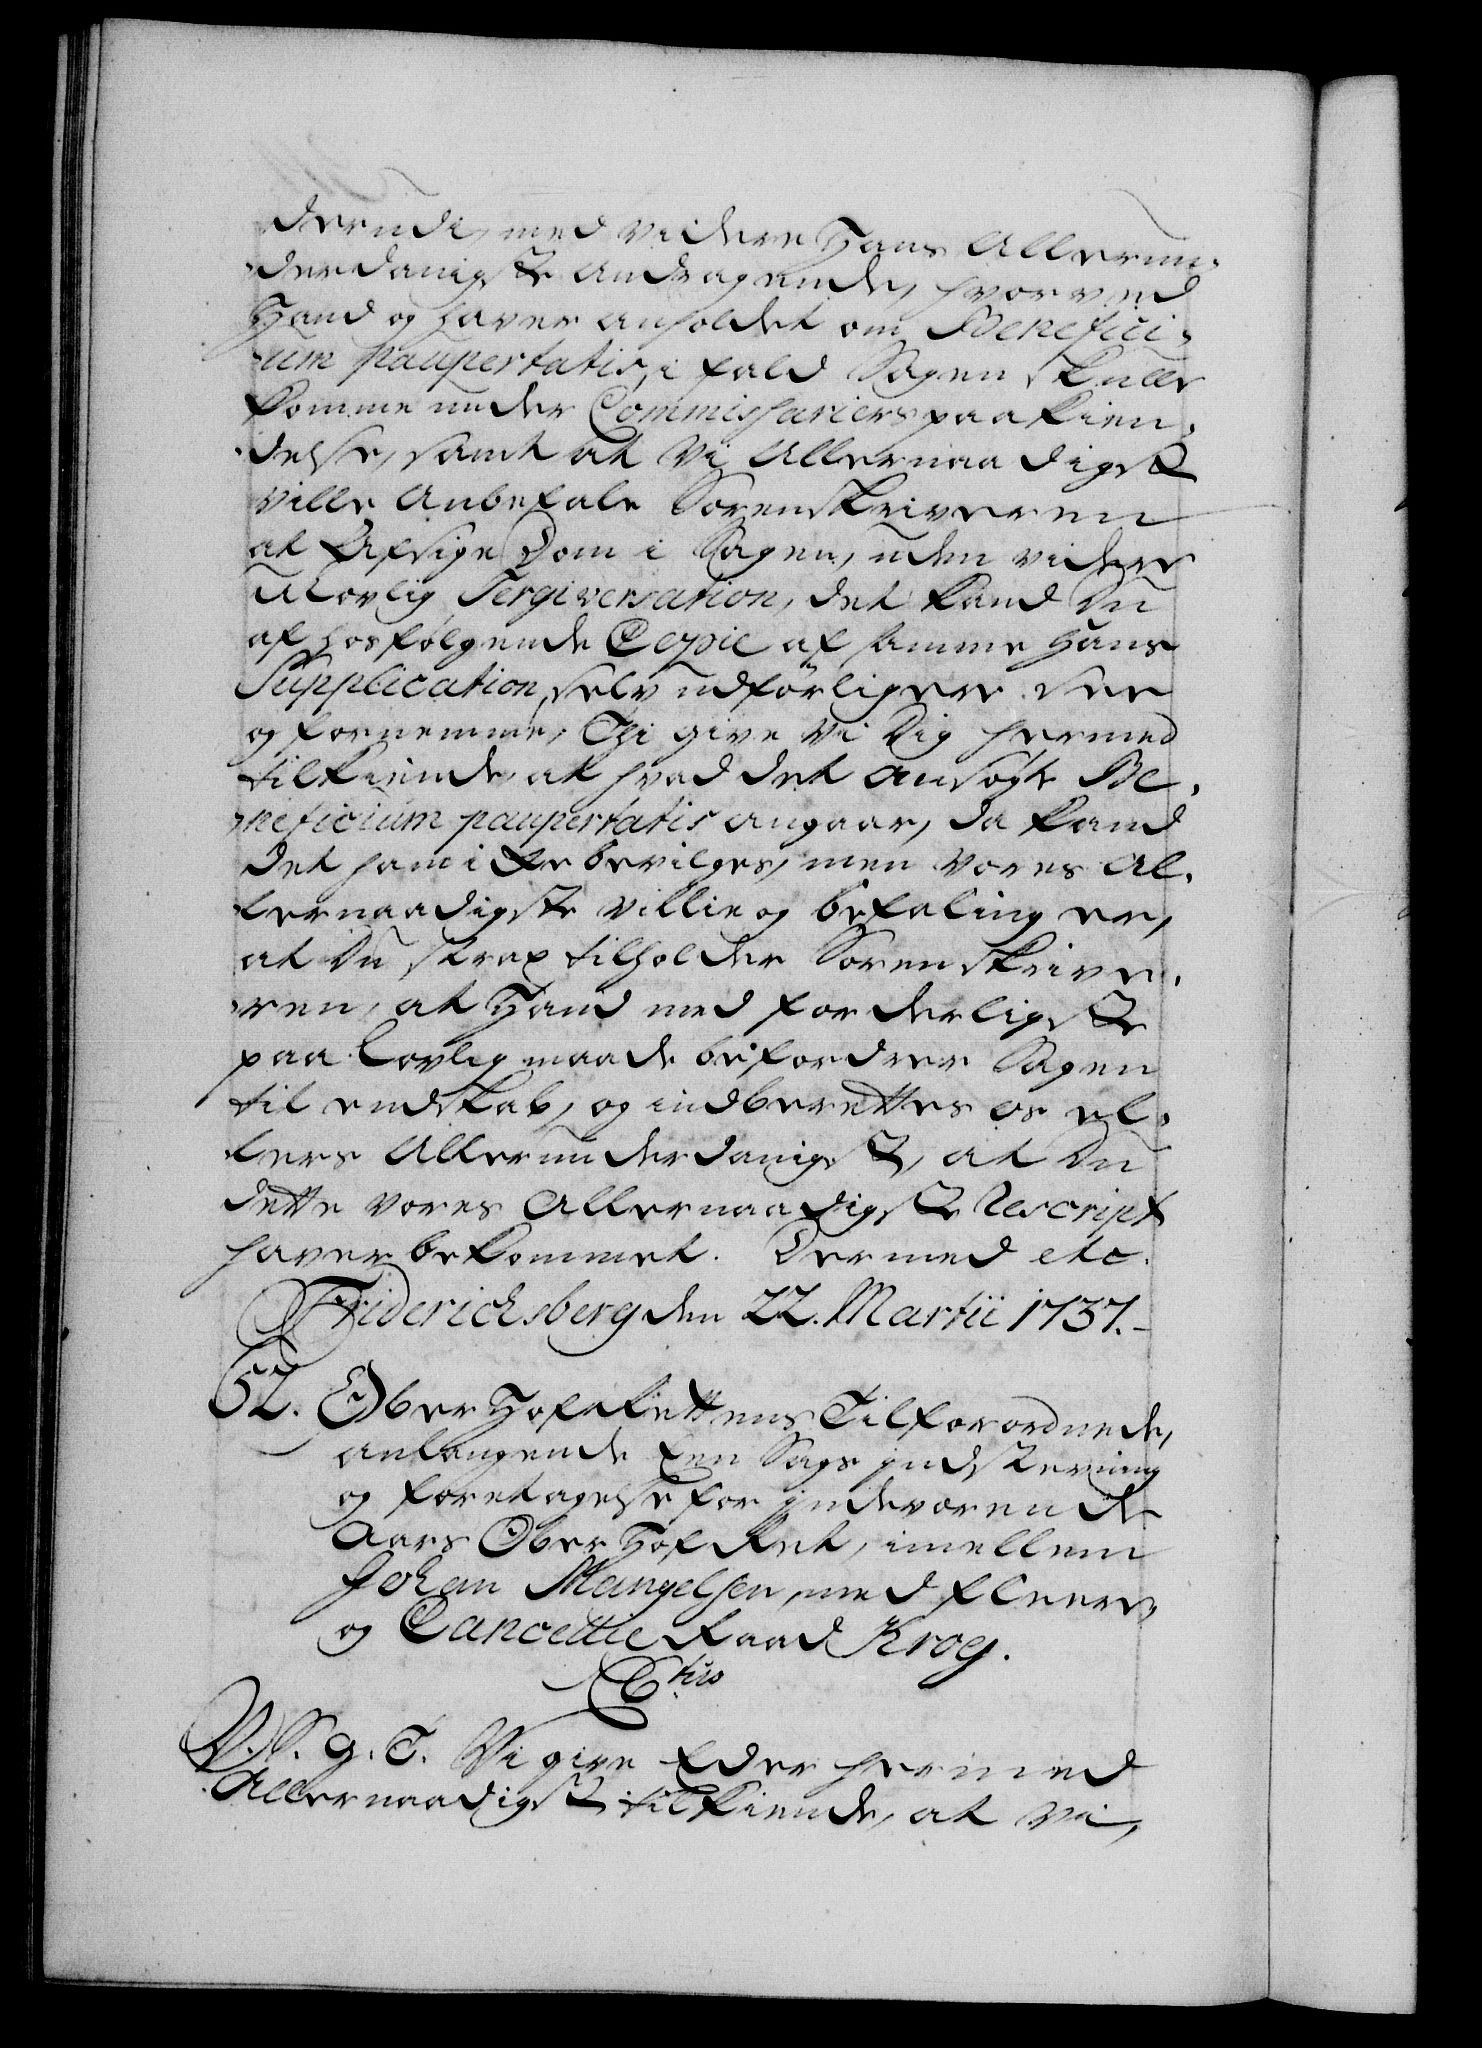 derudi, med videre Hans Allerun-
derdanigste Andragende, hvorved
Hand og haver anholdet om Benefici-
um paupertatis, i fald Sagen skulle
komme under Commissariers paakien-
delse, samt at Vi Allernaadigst
ville Anbefale Sorenskriveren
at Afsige Dom i Sagen, uden videre
Ulovlig Tergiversation, det kand Du
af hosfølgende Copie af samme Hans
Supplication, selv udførligere see
og fornemme, Thi give Vi Dig hermed
tilkiende, at hvad det ansøgte Be-
neficium paupertatis angaar, da kand
det ham icke bevilges, men Vores Al-
lernaadigste Villie og befaling er,
at Du strax tilholder Sorenskrive-
ren, at Hand med forderligste
paa lovlig maade befordrer Sagen
til endskab, og indberettes os el-
lers Allerunderdanigst, at Du
dette Vores Allernaadigste Rescript
haver bekommet. Dermed etc.
Friderichsberg den 22. Martii 1737.
52. Ober Hof Rettens Tilforordnede,
anlangende Een Sags indstevning
og foretagelse for indeværende
Aars Ober Hof Ret, imellem
Johan Mangelsen, med fleere,
og Cancellie Raad Krog.
C6tus
V. S. G. T. Vi give Eder hermed
Allernaadigst tilkiende, at Vi,